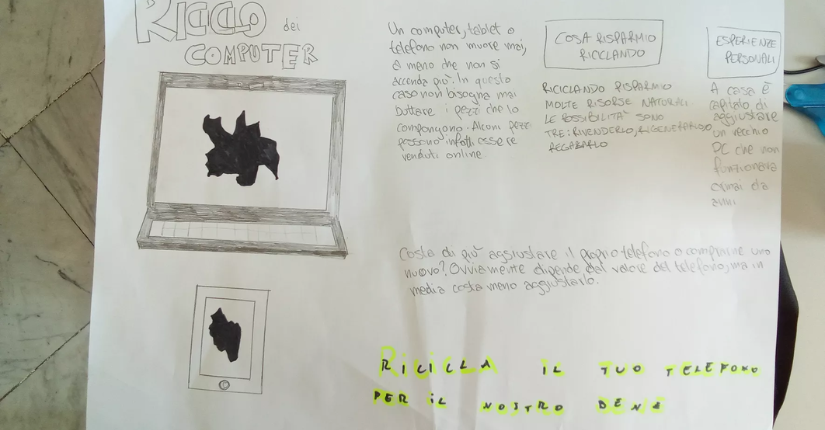 RICICLO del
COMPUTER
Un computer, tablet o
telefono non muore mai,
a meno che non si
accenda più. In questo
caso non bisogna mai
buttare i pezzi che lo
compongono. Alcuni pezzi
possono infatti essere
venduti online.
COSA RISPARMIO
RICICLANDO
RICICLANDO RISPARMIO
MOLTE RISORSE NATURALI
LE POSSIBILITA' SONO
TRE: RIVENDERLO, RIGENERARLO
REGALARLO
ESPERIENZE
PERSONALI
A casa È
capitato di
aggiustare
un vecchio
PC che non
funzionava
ormai da
anni
Costa di più aggiustare il proprio telefono o comprarne uno
nuovo? Ovviamente dipende dal valore del telefono, ma in
media costa meno aggiustarlo.
RICICLA IL TUO TELEFONO
PER IL NOSTRO BENE